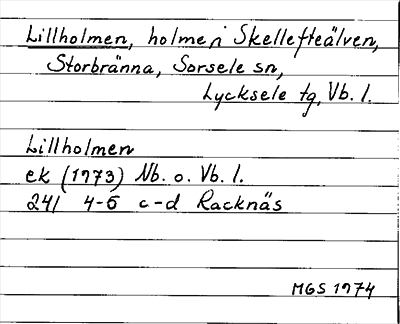 Lillholmen, holme i Skellefteälven,
Storbränna, Sorsele sn,
Lycksele tg, Vb. l.
Lillholmen
ek (1973) Nb. o. Vb. l.
24I 4-5 c-d Racknäs
MGS 1974